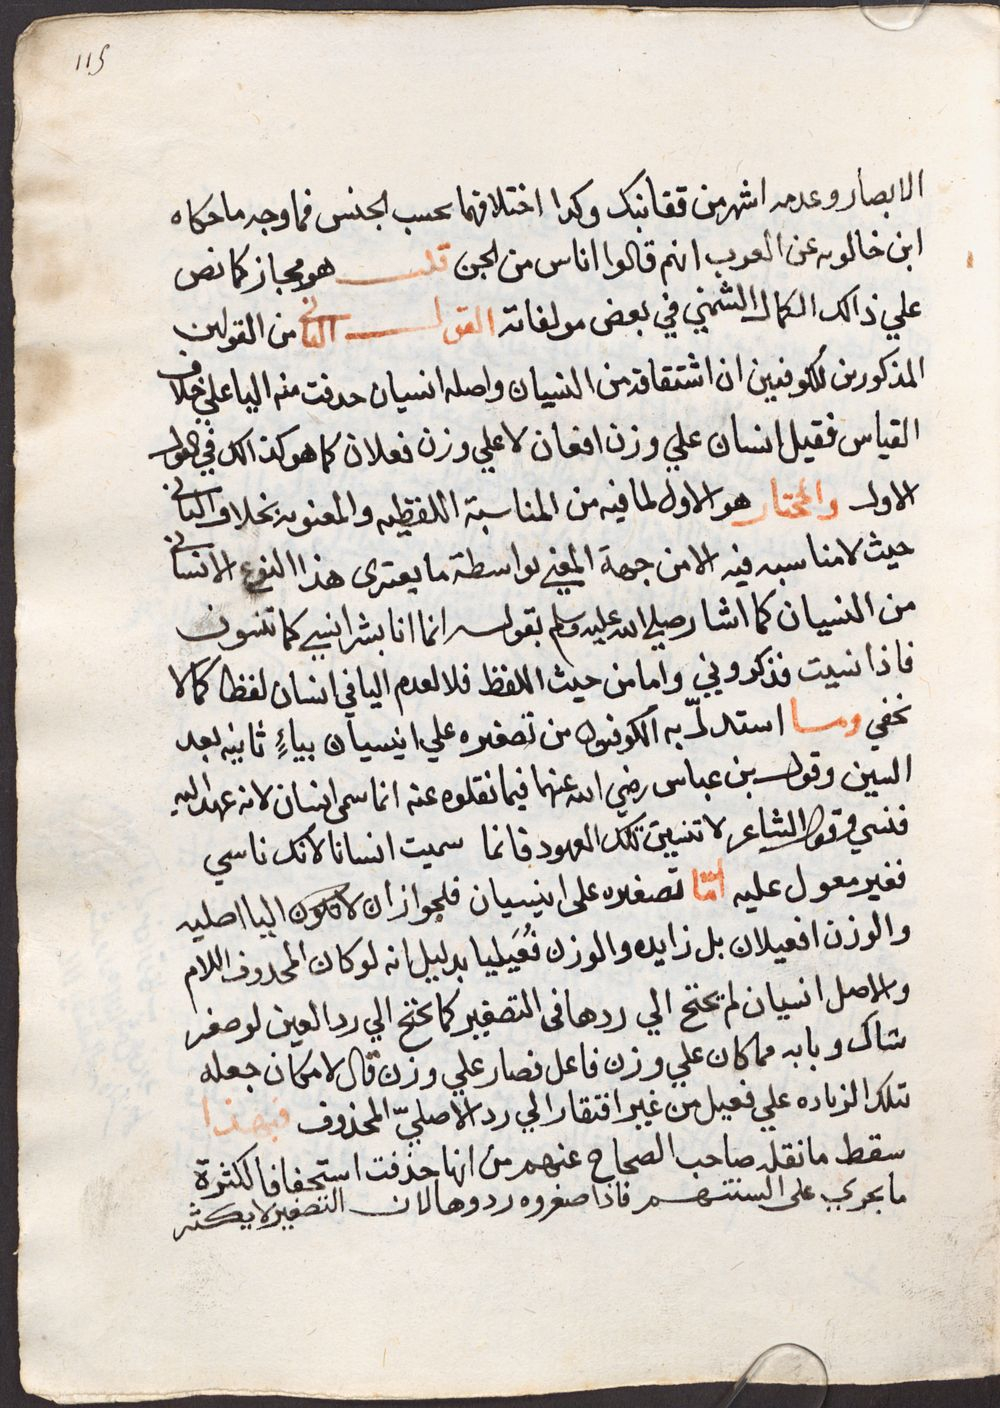 115
الابصار وعدمه اشهر من قفا نبك وكدا اختلافهما بحسب الجنس فما وجه ما حكاه
ابن خالويه عن العرب انهم قالوا اناس من الجن قلت هو مجاز كما نص
علي ذالك الكمال الشمني في بعض مولفاته القول الثاني من القولين
المذكورين للكوفيين ان اشتقاقه من النسيان واصله انسيان حدفت منه اليا علي خلاف
القياس فقيل انسان علي وزن افعان لا علي وزن فعلان كما هو كذالك في القول
الاول والمختار هو الاول لما فيه من المناسبة اللفظيه والمعنويه بخلاف الثاني
حيث لا مناسبه فيه الا من جهة المعني بواسطة ما يعترى هذا النوع الانساني
من النسيان كما اشار صلي الله عليه وسلم بقوله انما انا بشر انسي كما تنسون
فاذا نسيت فذكروني واما من حيث اللفظ فلا لعدم اليا في انسان لفظا كما لا
يخفي وما استدلّ به الكوفيون من تصغيره علي انيسيان بياءٍ ثانيه بعد
السين وقول بن عباس رضي الله عنهما فيما نقلوه عنه انما سمى انسان لانه عهد اليه
فنسي وقول الشاعر لا تنسين تلك العهود فانما سميت انسانا لانك ناسي
فغير معول عليه أمّا تصغيره على انيسيان فلجواز ان لا تكون اليا اصليه
والوزن افعيلان بل زايده والوزن فُعَيليا بدليل انه لو كان المحدوف اللام
والاصل انسيان لم يحتج الي ردها فى التصغير كما يحتج الي رد العين لو صغر
شاك وبابه مما كان علي وزن فاعل فصار علي وزن قال لامكان جعله
تلك الزياده علي فعيل من غير افتقار الي رد الاصليّ المحذوف فبهذا
سقط ما نقله صاحب الصحاح عنهم من انها حذفت استخفافا لكثرة
ما يجري على السنتهم فاذا صغروه ردوها لان التصغير لا يكثر